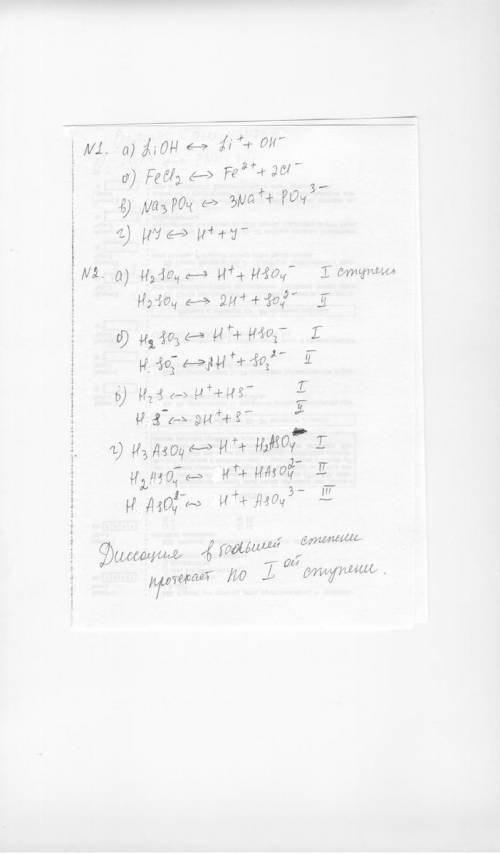 N1. а) LiOH ↔ Li⁺ + OH⁻
б) FeCl₂ ↔ Fe²⁺ + 2Cl⁻
в) Na₃PO₄ ↔ 3Na⁺ + PO₄³⁻
г) HY ↔ H⁺ + Y⁻
N2. а) H₂SO₄ ↔ H⁺ + HSO₄⁻ I ступень
H₂SO₄ ↔ 2H⁺ + SO₄²⁻ II
б) H₂SO₃ ↔ H⁺ + HSO₃⁻ I
H SO₃⁻ ↔ H⁺ + SO₃²⁻ II
в) H₂S ↔ H⁺ + HS⁻ I
H S⁻ ↔ 2H⁺ + S⁻ II
г) H₃AsO₄ ↔ H⁺ + H₂AsO₄⁻ I
H₂AsO₄⁻ ↔ H⁺ + HAsO₄²⁻ II
H AsO₄²⁻ ↔ H⁺ + AsO₄³⁻ III
Диссация в большей степени
протекает по I ой ступени.